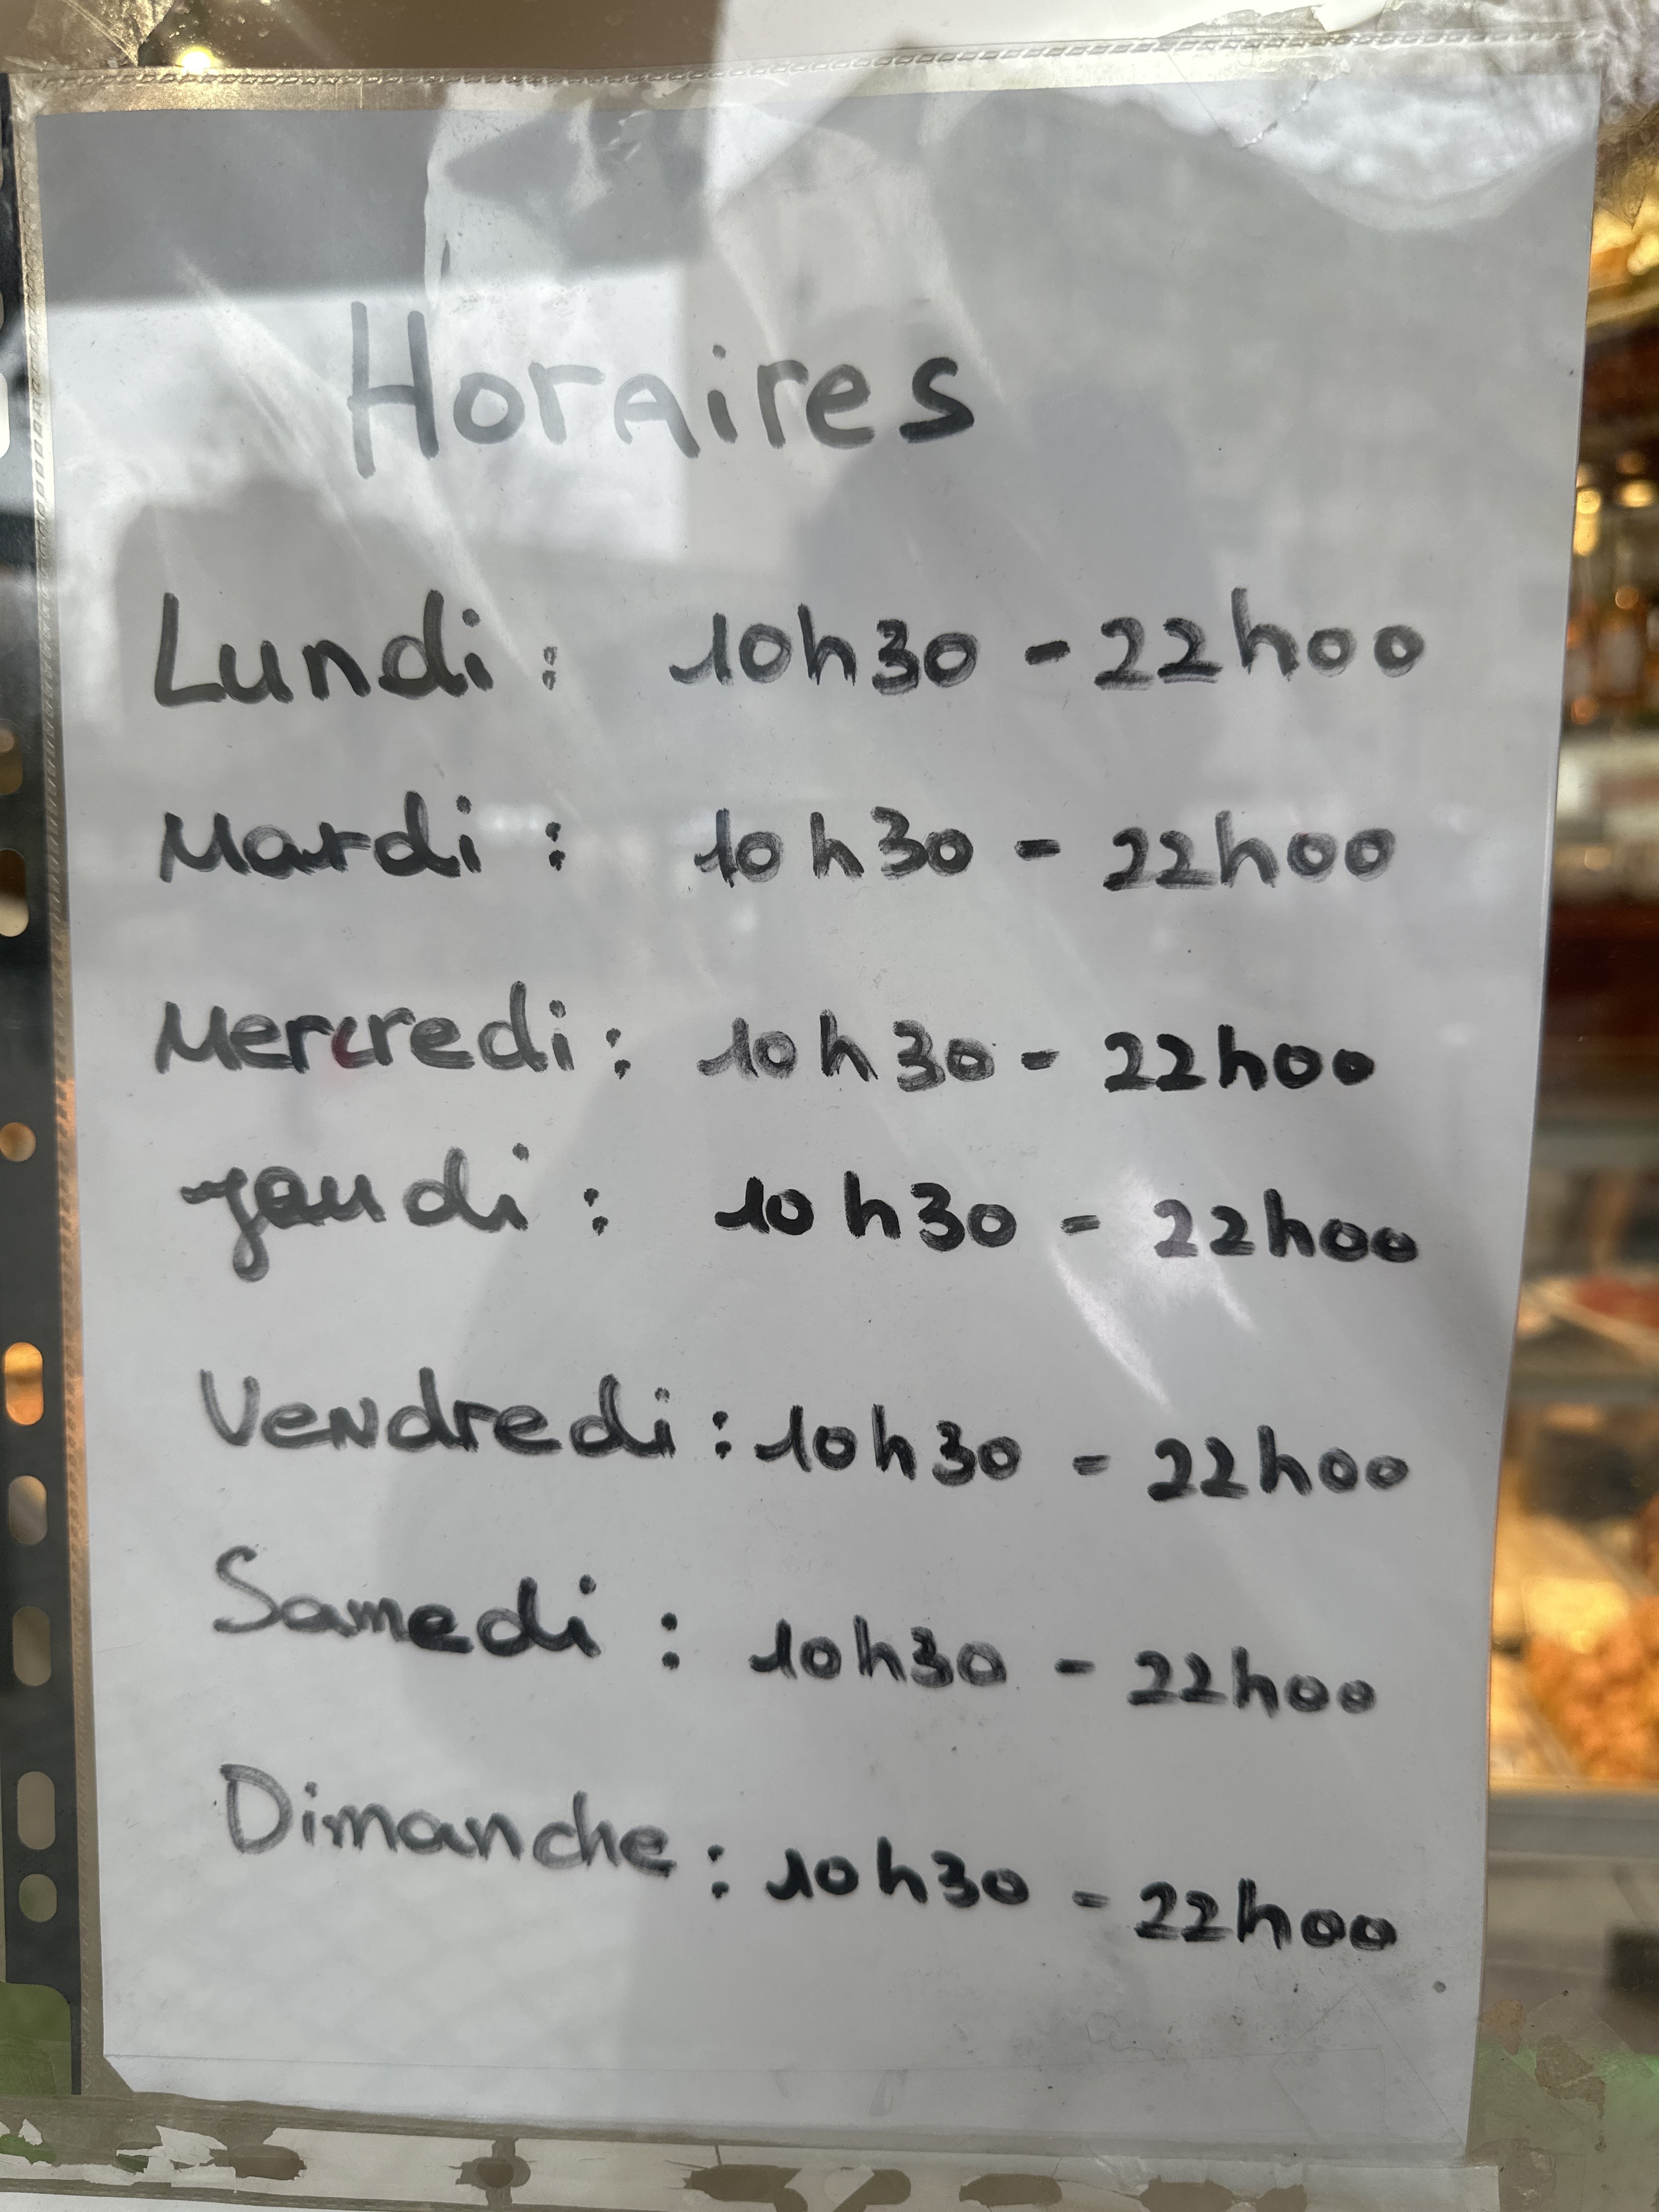 Horaires
Lundi : 10h30 - 22h00
Mardi : 10h30 - 22h00
Mercredi : 10h30 - 22h00
Jeudi : 10h30 - 22h00
Vendredi : 10h30 - 22h00
Samedi : 10h30 - 22h00
Dimanche : 10h30 - 22h00